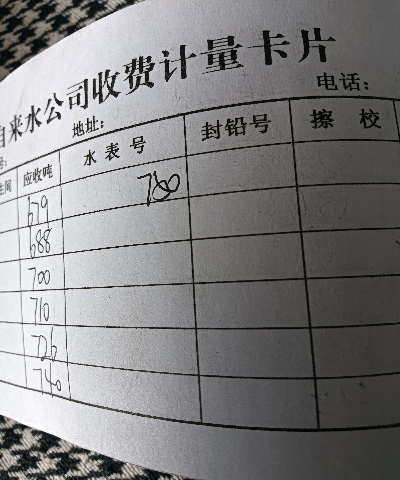 自来水公司收费计量卡片
地址: 电话:
号:
间 应收吨 水表号 封铅号 擦校
679 780
688
700
710
726
740